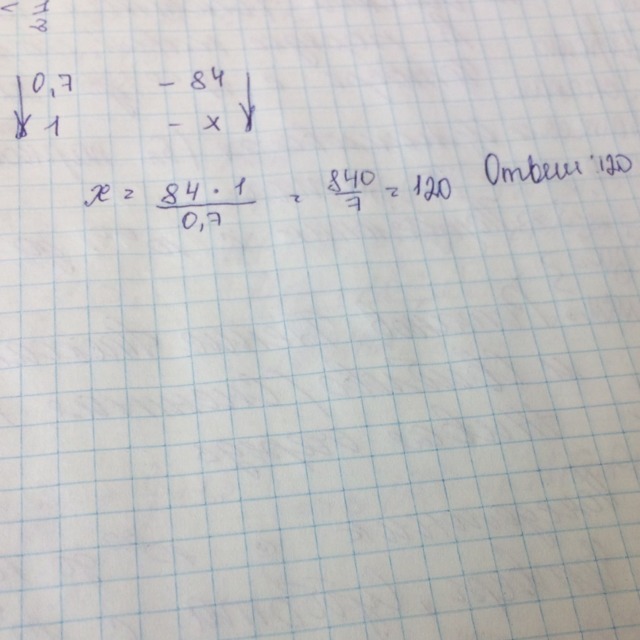 0,7 - 84
1 - x
x = 84 · 1 / 0,7 = 840 / 7 = 120 Ответ: 120